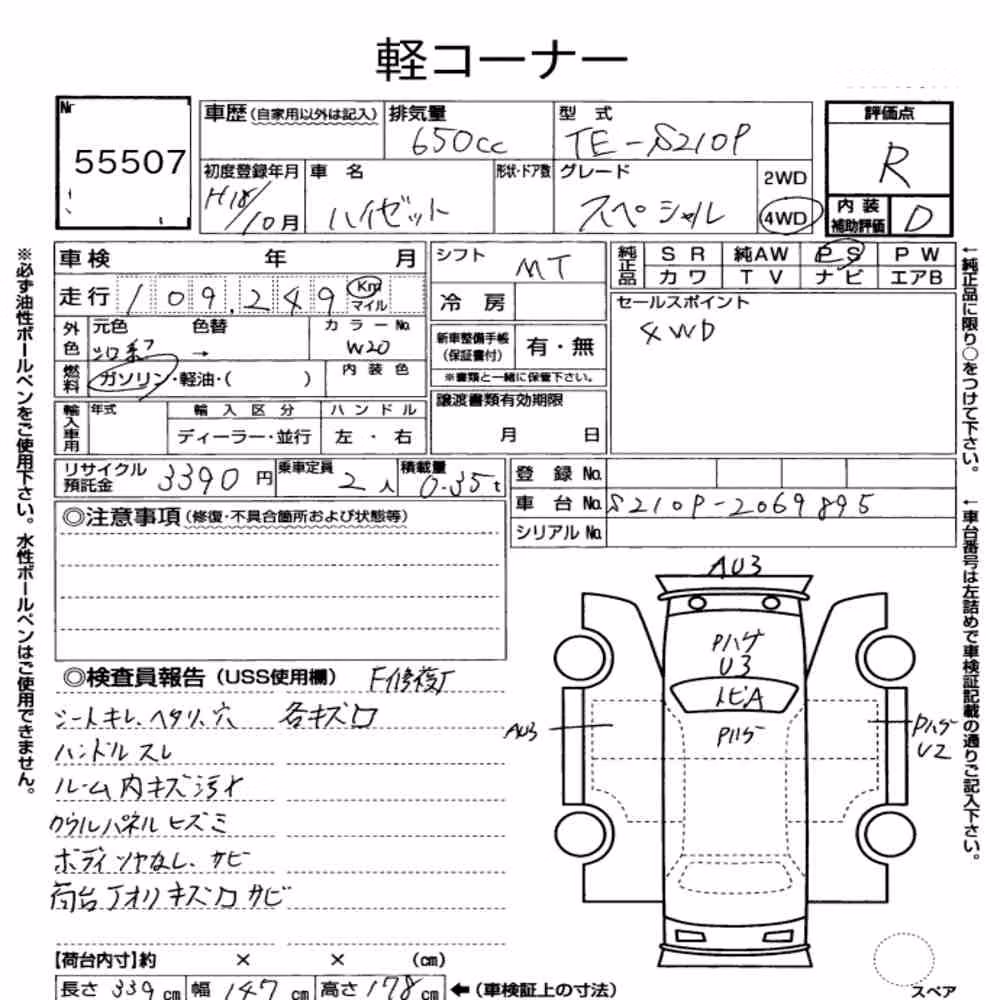 軽コーナー
Nr
55507
車歴(自家用以外は記入)
排気量
650cc
型式
TE-S210P
評価点
R
初度登録年月
H18/10月
車名
ハイゼット
形状・ドア数
グレード
スペシャル
2WD
4WD
内装
補助評価
D
車検 年 月
走行 109,249 Km
マイル
シフト
MT
冷房
純正品
SR 純AW PS PW
カワ TV ナビ エアB
セールスポイント
4WD
外色
元色 色替
→
カラーNo.
W20
燃料
ガソリン・軽油・( )
内装色
新車整備手帳
(保証書付)
有・無
※書類と一緒に保管下さい。
輸入車用
年式
輸入区分
ディーラー・並行
ハンドル
左・右
譲渡書類有効期限
月 日
リサイクル
預託金
3390円
乗車定員
2人
積載量
0.35t
登録No.
車台No. S210P-2069895
シリアルNo.
◎注意事項(修復・不具合箇所および状態等)
◎検査員報告(USS使用欄) F修復了
シートキレ、ヘタリ、穴 各キズ凹
ハンドルスレ
ルーム内キズ汚れ
カウルパネルヒズミ
ボディツヤなし、サビ
荷台アオリキズ凹サビ
AU3
Pハゲ
U3
トビA
Pハゲ
AU3
Pハゲ
U2
【荷台内寸】約 × × (cm)
長さ 339cm 幅 147cm 高さ 178cm ←(車検証上の寸法)
スペア
※必ず油性ボールペンをご使用下さい。水性ボールペンはご使用できません。
←純正品に限り○をつけて下さい。
←車台番号は左詰めで車検証記載の通りご記入下さい。